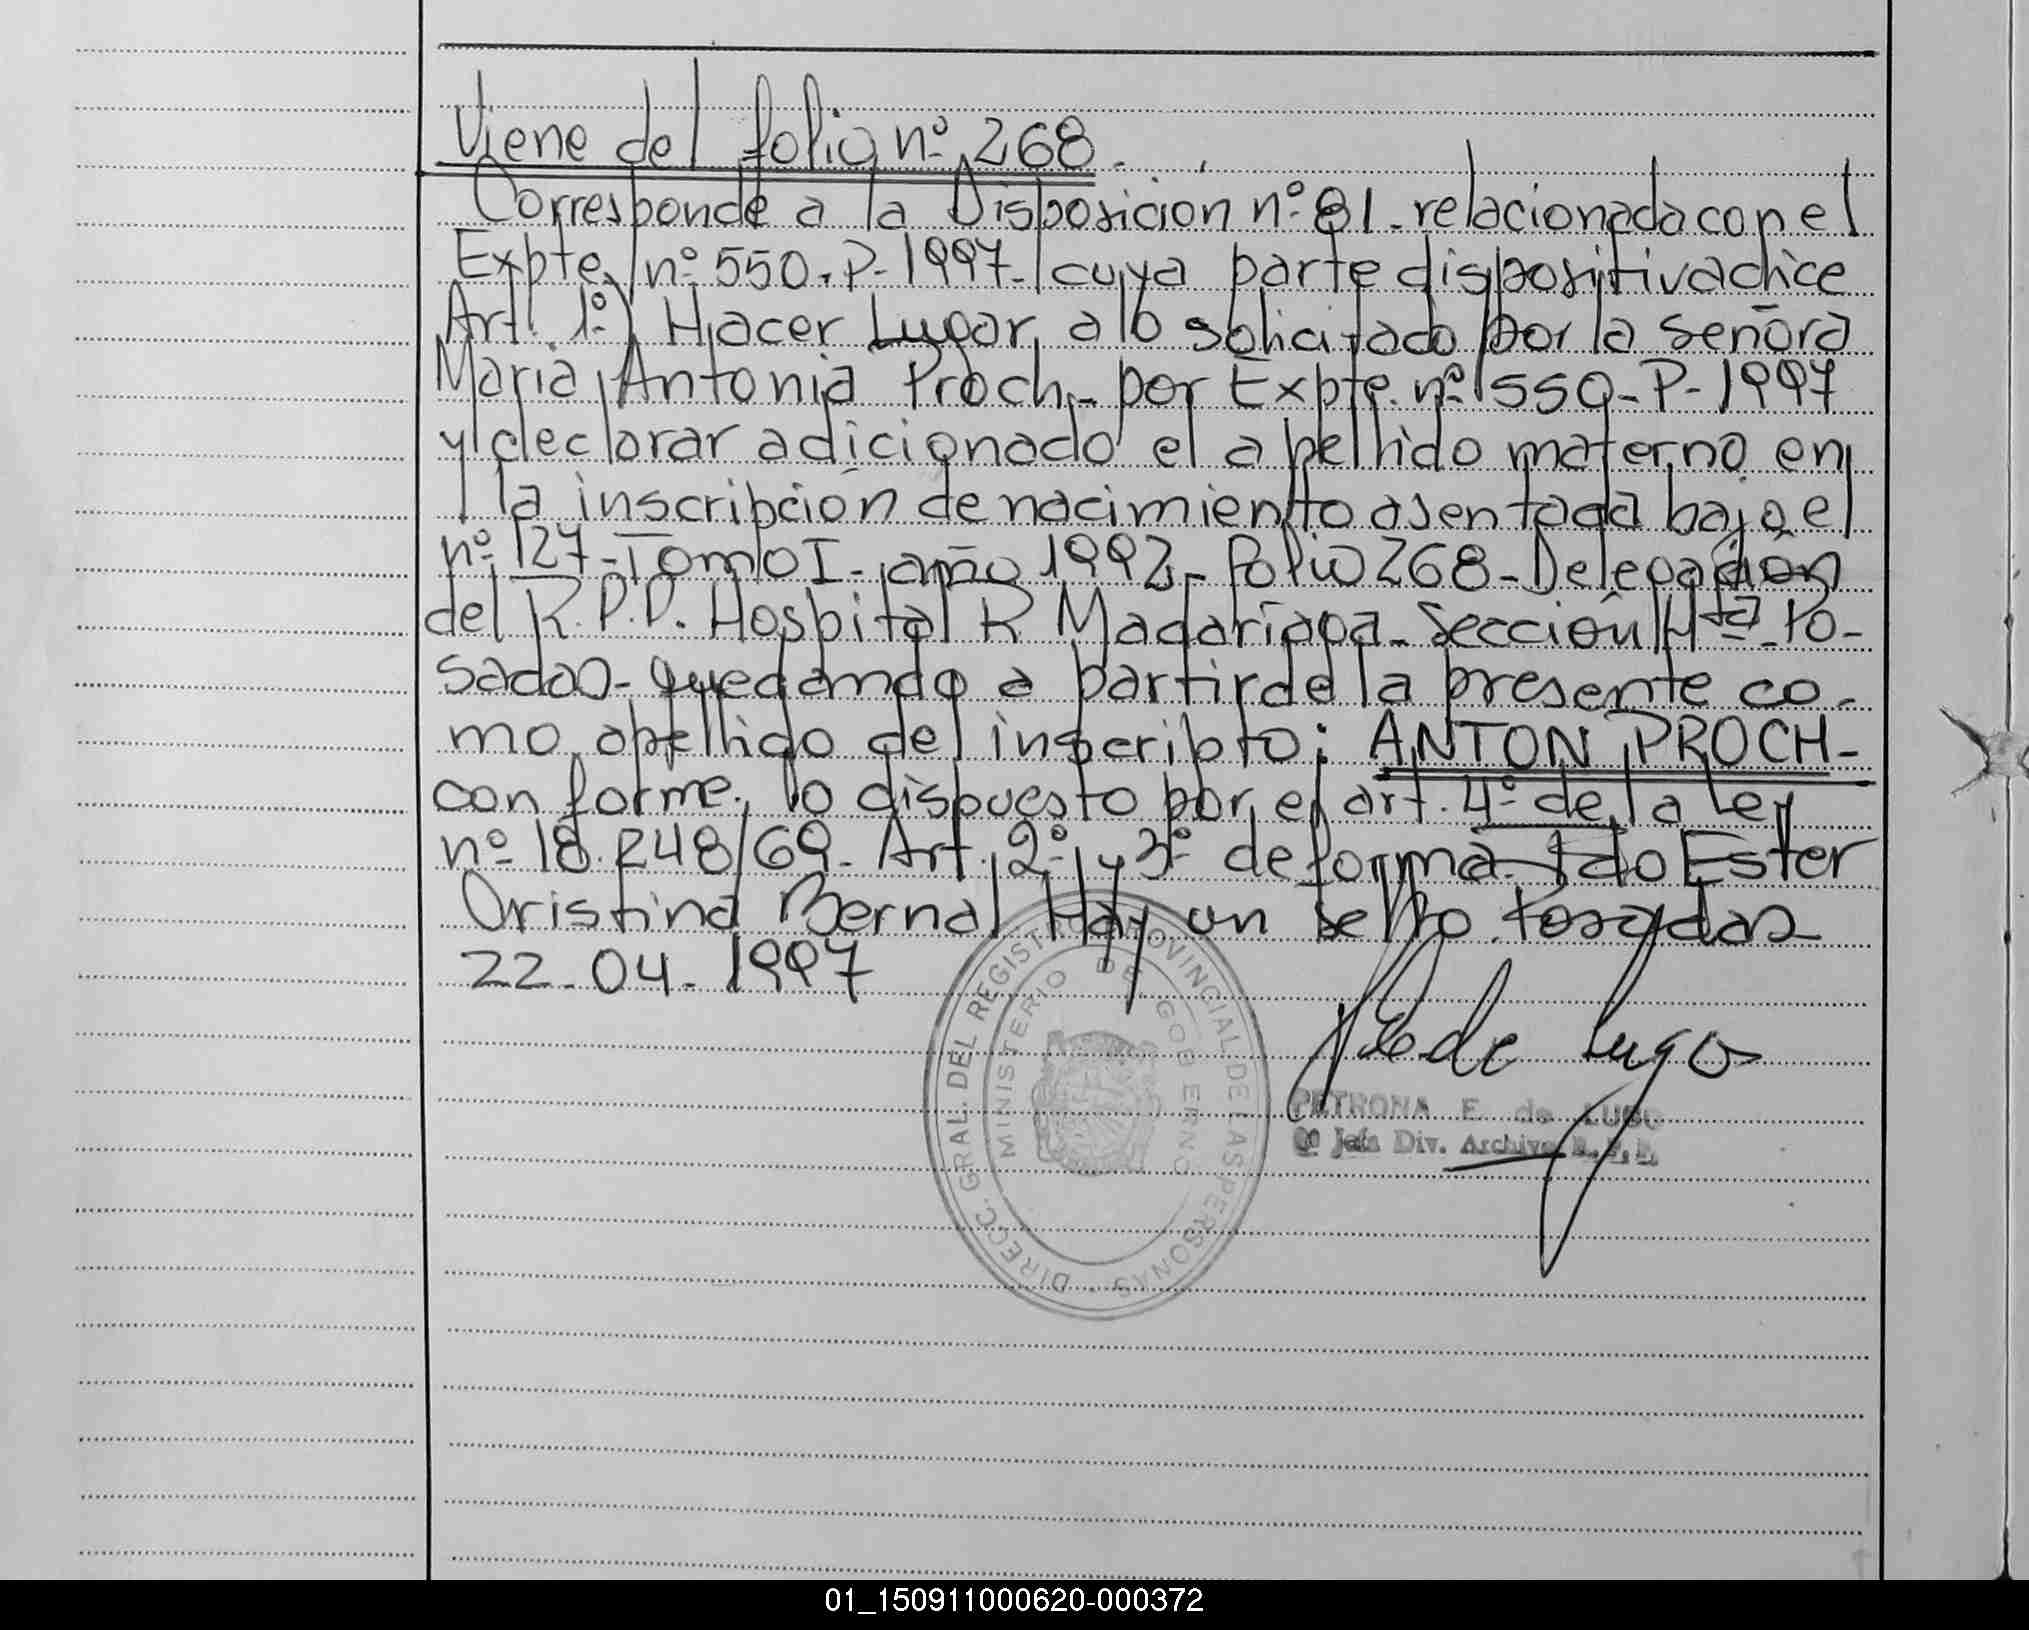 Viene del folio nº 268.
Corresponde a la Disposición nº 81 - relacionada con el
Expte. nº 550-P-1997- cuya parte dispositiva dice
Art. 1º) Hacer Lugar a lo solicitado por la señora
Maria Antonia Proch - por Expte. nº 550-P-1997
y declarar adicionado el apellido materno en
la inscripción de nacimiento asentada bajo el
nº 127 - Tomo I - año 1992 - Folio 268 - Delegación
del R.P.P. Hospital R Madariaga - Sección 4ta - Po-
sadas - quedando a partir de la presente co-
mo apellido del inscripto: ANTON PROCH -
conforme lo dispuesto por el art. 4º de la Ley
nº 18.248/69 - Art. 2º y 3º de forma - Fdo Ester
Cristina Bernal Hay un sello. Posadas
22-04-1997
DIRECC. GRAL. DEL REGISTRO PROVINCIAL DE LAS PERSONAS
MINISTERIO DE GOBIERNO
de Lugo
PETRONA E. de LUGO
Jefa Div. Archivo R.P.P.
01_150911000620-000372